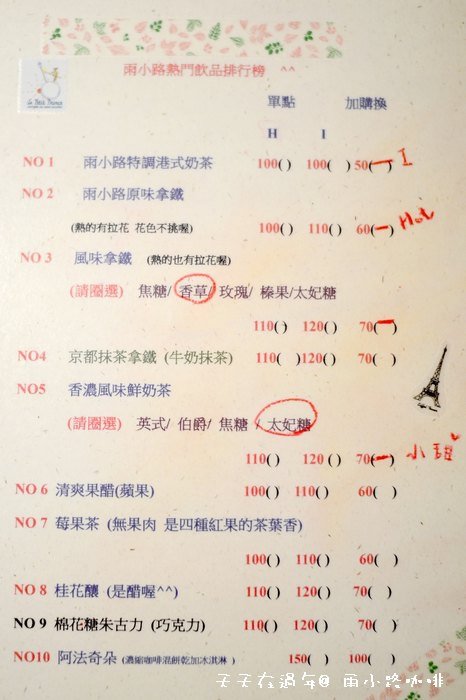 Le Petit Prince
雨小路熱門飲品排行榜 ^^
單點 加購換
H I
NO 1 雨小路特調港式奶茶 100( ) 100( ) 50(一) I
NO 2 雨小路原味拿鐵
(熱的有拉花 花色不挑喔) 100( ) 110( ) 60(一) Hot
NO 3 風味拿鐵 (熱的也有拉花喔)
(請圈選) 焦糖/ 香草/ 玫瑰/ 榛果/太妃糖
110( ) 120( ) 70(一)
NO4 京都抹茶拿鐵 (牛奶抹茶) 110( ) 120( ) 70( )
NO5 香濃風味鮮奶茶
(請圈選) 英式/ 伯爵/ 焦糖 / 太妃糖
110( ) 120 ( ) 70(一) 小甜
NO 6 清爽果醋(蘋果) 100( ) 110( ) 60( )
NO 7 莓果茶 (無果肉 是四種紅果的茶葉香)
100( ) 110( ) 60( )
NO 8 桂花釀 (是醋喔^^) 110( ) 120( ) 70( )
NO 9 棉花糖朱古力 (巧克力) 110( ) 120( ) 70( )
NO10 阿法奇朵 (濃縮咖啡混餅乾加冰淇淋 ) 150( ) 100( )
天天在過年@ 雨小路咖啡